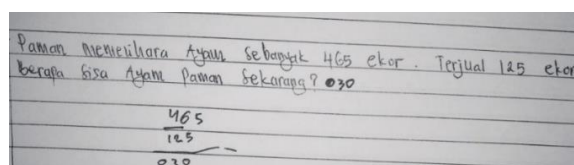 Paman memelihara Ayam Sebanyak 465 ekor. Terjual 125 ekor
berapa Sisa Ayam Paman Sekarang? 030
465
125